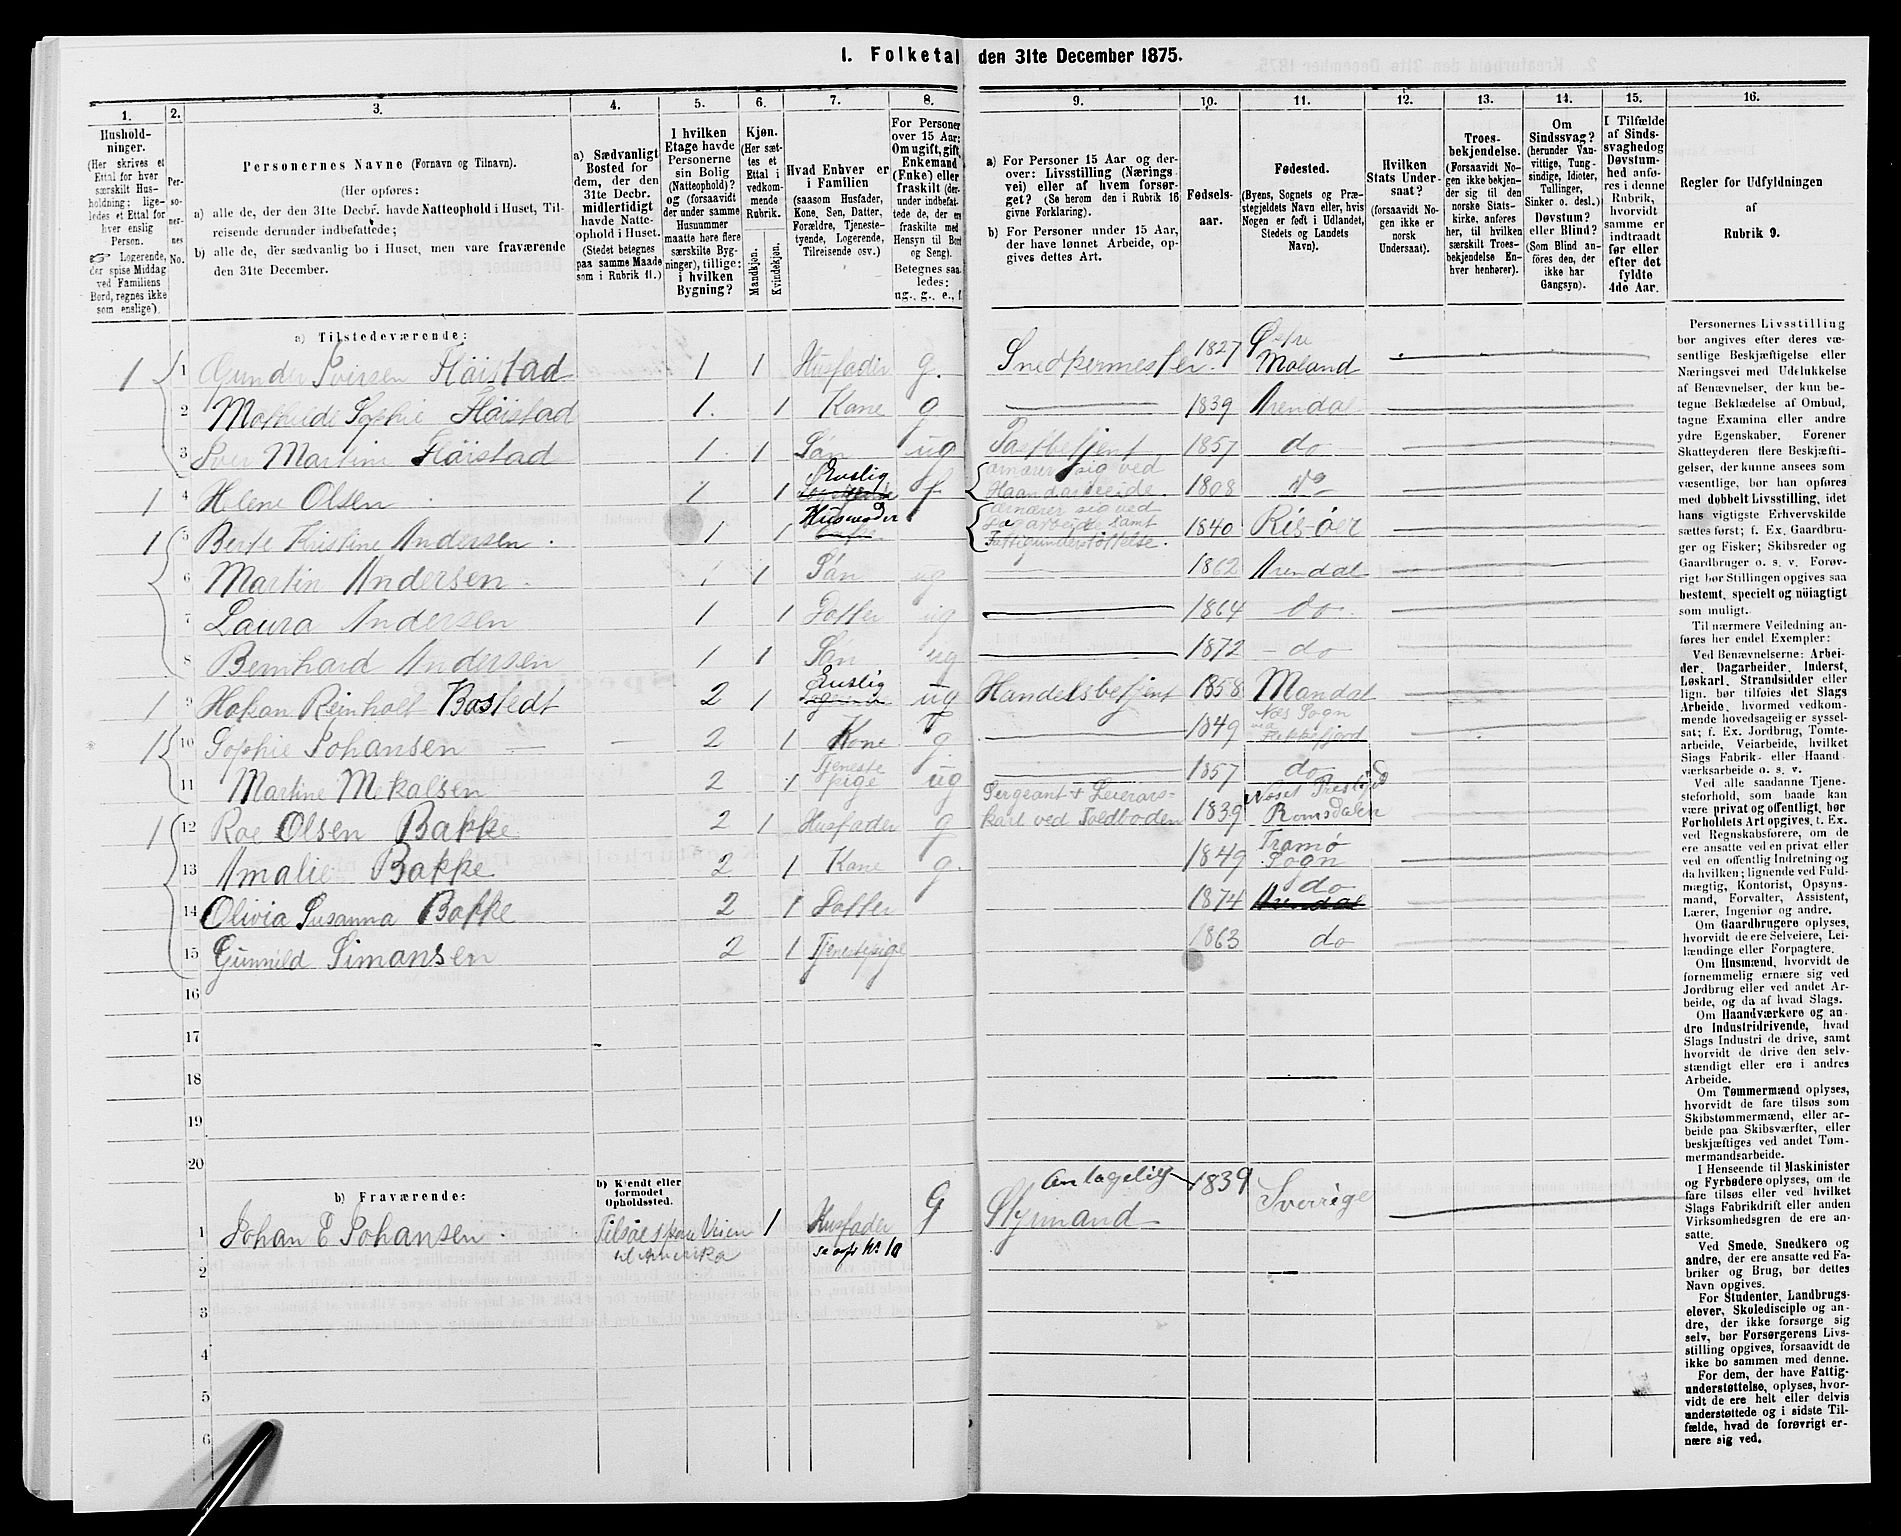 1. Folketal den 31te December 1875.
1. 2. 3. 4. 5. 6. 7. 8. 9. 10. 11. 12. 13. 14. 15. 16.
Hushold-
ninger.
(Her skrives et
Ettal for hver
særskilt Hus-
holdning; lige-
ledes et Ettal for
hver enslig
Person.
☞ Logerende,
der spise Middag
ved Familiens
Bord, regnes ikke
som enslige).
Per-
so-
ner-
nes
No.
Personernes Navne (Fornavn og Tilnavn).
(Her opføres:
a) alle de, der den 31te Decbr. havde Natteophold i Huset, Til-
reisende derunder indbefattede;
b) alle de, der sædvanlig bo i Huset, men vare fraværende
den 31te December.
a) Sædvanligt
Bosted for
dem, der den
31te Decbr.
midlertidigt
havde Natte-
ophold i Huset.
(Stedet betegnes
paa samme Maade
som i Rubrik 11.)
I hvilken
Etage havde
Personerne
sin Bolig
(Natteophold)?
og (forsaavidt
der under samme
Husnummer
maatte høre flere
særskilte Byg-
ninger), tillige:
i hvilken
Bygning?
Kjøn.
(Her sæt-
tes et
Ettal i
vedkom-
mende
Rubrik.
Mandkjøn.
Kvindekjøn.
Hvad Enhver er
i Familien
(saasom Husfader,
Kone, Søn, Datter,
Forældre, Tjeneste-
tyende, Logerende,
Tilreisende osv.)
For Personer
over 15 Aar:
Om ugift, gift,
Enkemand
(Enke) eller
fraskilt (der-
under indbefat-
tede de, der ere
fraskilte med
Hensyn til Bord
og Seng).
Betegnes saa-
ledes:
ug., g., e., f.
a) For Personer 15 Aar og der-
over: Livsstilling (Nærings-
vei) eller af hvem forsør-
get? (Se herom den i Rubrik 16
givne Forklaring).
b) For Personer under 15 Aar,
der have lønnet Arbeide, op-
gives dettes Art.
Fødsels-
aar.
Fødested.
(Byens, Sognets og Præ-
stegjeldets Navn eller, hvis
Nogen er født i Udlandet,
Stedets og Landets
Navn).
Hvilken
Stats Under-
saat?
(forsaavidt No-
gen ikke er
norsk
Undersaat).
Troes-
bekjendelse.
(Forsaavidt No-
gen ikke bekjen-
der sig til den
norske Stats-
kirke, anføres
her, til hvilken
særskilt Troes-
bekjendelse En-
hver henhører).
Om
Sindssvag?
(herunder Van-
vittige, Tung-
sindige, Idioter,
Tullinger,
Sinker o. desl.)
Døvstum?
eller Blind?
(Som Blind an-
føres den, der
ikke har
Gangsyn).
I Tilfælde
af Sinds-
svaghed og
Døvstum-
hed anfø-
res i denne
Rubrik,
hvorvidt
samme er
indtraadt
før eller
efter det
fyldte
4de Aar.
Regler for Udfyldningen
af
Rubrik 9.
a) Tilstedeværende:
1 1 Gunder Iversen Høistad 1 1 Husfader g. Snedkermester. 1827 Østre Moland
2 Mathilde Sophie Høistad 1. 1 Kone g 1839 Arendal
3 Iver Martini Høistad 1. 1 Søn ug 1857 do
1 4 Helene Olsen 1 1 Enslig f ernærer sig ved Haandarbeide. 1808 do
1 5 Berte Kristine Andersen. 1 1 Husmoder ernærer sig ved Dagarbeide samt Fattigunderstøttelse. 1840 Ris-øer
6 Martin Andersen. 1 1 Søn ug 1862 Arendal
7 Laura Andersen 1 1 Datter ug 1864 do
8 Bernhard Andersen 1 1 Søn ug 1872 do
1 9 Hakan Reinholt Bostedt 2 1 Enslig ug Handelsbetjent 1858 Mandal
1 10 Sophie Johansen 2 1 Kone g 1849 Næs Sogn via Flekkefjord
11 Martine Mikalsen 2 1 Tjeneste pige ug 1857 do
1 12 Roe Olsen Bakke 2 1 Husfader g Sergeant + Leierars- karl ved Toldboden 1839 Romsdalen
13 Amalie Bakke 2 1 Kone g. 1849 Tromø Sogn
14 Olivia Susanna Bakke 2 1 Datter 1874 do Arendal
15 Gunnild Simonsen 2 1 Tjenestepige 1863 do
16
17
18
19
20
b) Fraværende:
b) Kjendt eller
formodet
Opholdssted.
1 Johan E Johansen. Tilsøes fra Wien til Amerika 1 Husfader se opf No 10 G Styrmand Antagelig 1839 Sverrige
2
3
4
5
6
Personernes Livsstilling
bør angives efter deres væ-
sentlige Beskjæftigelse eller
Næringsvei med Udelukkelse
af Benævnelser, der kun be-
tegne Beklædelse af Ombud,
tagne Examina eller andre
ydre Egenskaber. Forener
Skatteyderen flere Beskjæfti-
gelser, der kunne ansees som
væsentlige, bør han opføres
med dobbelt Livsstilling, idet
hans vigtigste Erhvervskilde
sættes først; f. Ex. Gaardbru-
ger og Fisker; Skibsreder og
Gaardbruger o. s. v. Forøv-
rigt bør Stillingen opgives saa
bestemt, specielt og nøiagtigt
som muligt.
Til nærmere Veiledning an-
føres her endel Exempler:
Ved Benævnelserne: Arbei-
der, Dagarbeider, Inderst,
Løskarl, Strandsidder eller
lign. bør tilføies det Slags
Arbeide, hvormed vedkom-
mende hovedsagelig er syssel-
sat; f. Ex. Jordbrug, Tomte-
arbeide, Veiarbeide, hvilket
Slags Fabrik- eller Haand-
værksarbeide o. s. v.
Ved alle saadanne Tjene-
steforhold, som baade kan
være privat og offentlig, bør
Forholdets Art opgives, t. Ex.
ved Regnskabsførere, om de
ere ansatte ved en privat eller
ved en offentlig Indretning og
da hvilken; lignende ved Fuld-
mægtig, Kontorist, Opsyns-
mand, Forvalter, Assistent,
Lærer, Ingeniør og andre.
Om Gaardbrugere oplyses,
hvorvidt de ere Selveiere, Lei-
lændinge eller Forpagtere.
Om Husmænd, hvorvidt de
fornemmelig ernære sig ved
Jordbrug eller ved andet Ar-
beide, og da af hvad Slags.
Om Haandværkere og an-
dre Industridrivende, hvad
Slags Industri de drive, samt
hvorvidt de drive den selv-
stændigt eller ere i andres
Arbeide.
Om Tømmermænd oplyses,
hvorvidt de fare tilsøs som
Skibstømmermænd, eller ar-
beide paa Skibsværfter, eller
beskjæftiges ved andet Tøm-
mermandsarbeide.
I Henseende til Maskinister
og Fyrbødere oplyses, om de
fare tilsøs eller ved hvilket
Slags Fabrikdrift eller anden
Virksomhedsgren de ere an-
satte.
Ved Smede, Snedkere og
andre, der ere ansatte ved Fa-
briker og Brug, bør dettes
Navn opgives.
For Studenter, Landbrugs-
elever, Skoledisciple og an-
dre, der ikke forsørge sig
selv, bør Forsørgerens Livs-
stilling opgives, forsaavidt de
ikke bo sammen med denne.
For dem, der have Fattig-
understøttelse, oplyses, hvor-
vidt de ere helt eller delvis
understøttede og i sidste Til-
fælde, hvad de forøvrigt er-
nære sig ved.